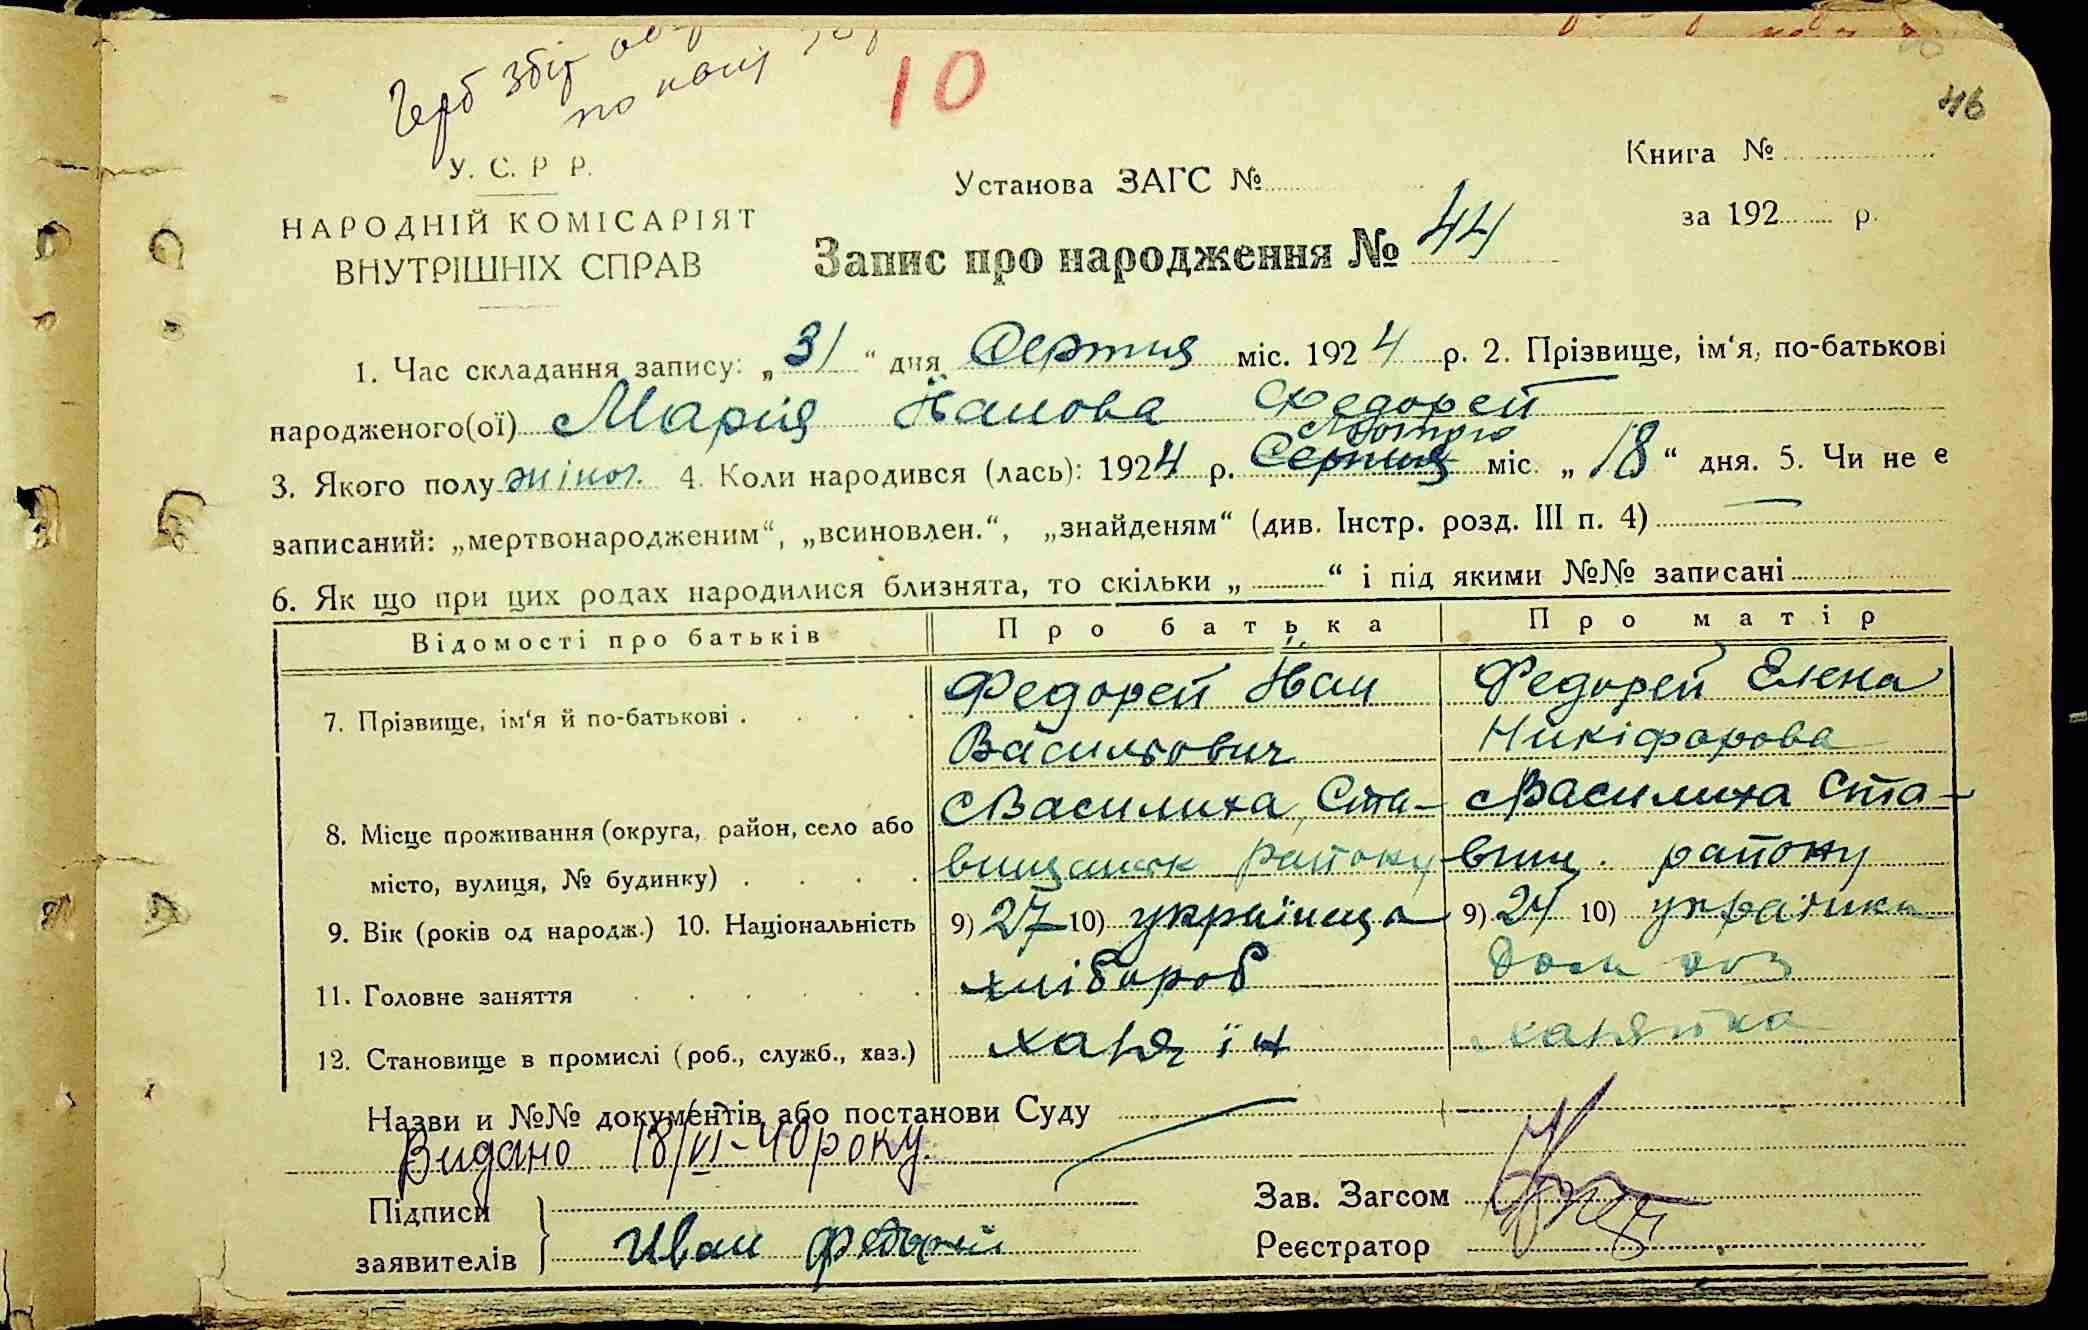 Герб збір
по
10
46
У. С. Р Р.
Установа ЗАГС №
Книга №
НАРОДНІЙ КОМІСАРІЯТ
за 192 р.
ВНУТРІШНІХ СПРАВ
Запис про народження № 44
1. Час складання запису: „31“ дня Серпня міс. 1924 р. 2. Прізвище, ім‘я, по-батькові
народженого(ої) Марія Іванова Федорей
Лютого
3. Якого полу жіноч. 4. Коли народився (лась): 1924 р. Серпня міс. „18“ дня. 5. Чи не є
записаний: „мертвонародженим“, „всиновлен.“, „знайденям“ (див. Інстр. розд. III п. 4)
6. Як що при цих родах народилися близнята, то скільки „ “ і під якими №№ записані
Відомості про батьків Про батька Про матір
7. Прізвище, ім‘я й по-батькові Федорей Іван Федорей Елена
Васильович Никіфорова
8. Місце проживання (округа, район, село або с Василиха, Ста- с Василиха Ста-
місто, вулиця, № будинку) вищанськ району вищ. району
9. Вік (років од народж.) 10. Національність 9) 27 10) українець 9) 24 10) українка
11. Головне заняття хлібороб Дом
12. Становище в промислі (роб., служб., хаз.) хазяїн хазяйка
Назви и №№ документів або постанови Суду
Видано 18/VI-40 року.
Підписи
Зав. Загсом
заявителів Иван Федорей
Реєстратор